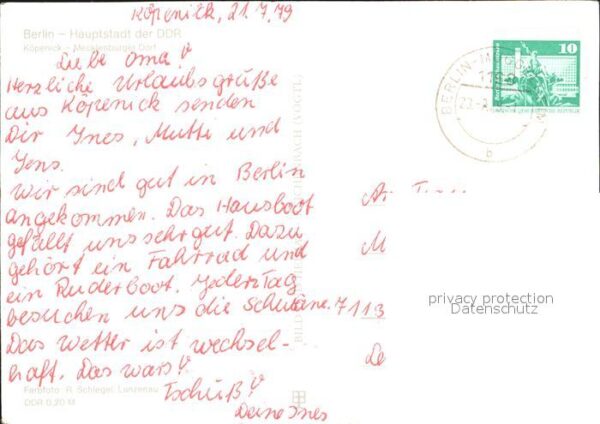 Köpenick, 21.7.79
Berlin – Hauptstadt der DDR
Köpenick – Mecklenburger Dorf
Liebe Oma!
Herzliche Urlaubsgrüße
aus Köpenick senden
Dir Ines, Mutti und
Jens.
Wir sind gut in Berlin
angekommen. Das Hausboot
gefällt uns sehr gut. Dazu
gehört ein Fahrrad und
ein Ruderboot. Jeden Tag
besuchen uns die Schwäne.
Das Wetter ist wechsel-
haft. Das wars!
Tschüß!
Deine Ines
Farbfoto: R. Schlegel, Lunzenau
DDR 0,20 M
BERLIN
10
7113
privacy protection
Datenschutz